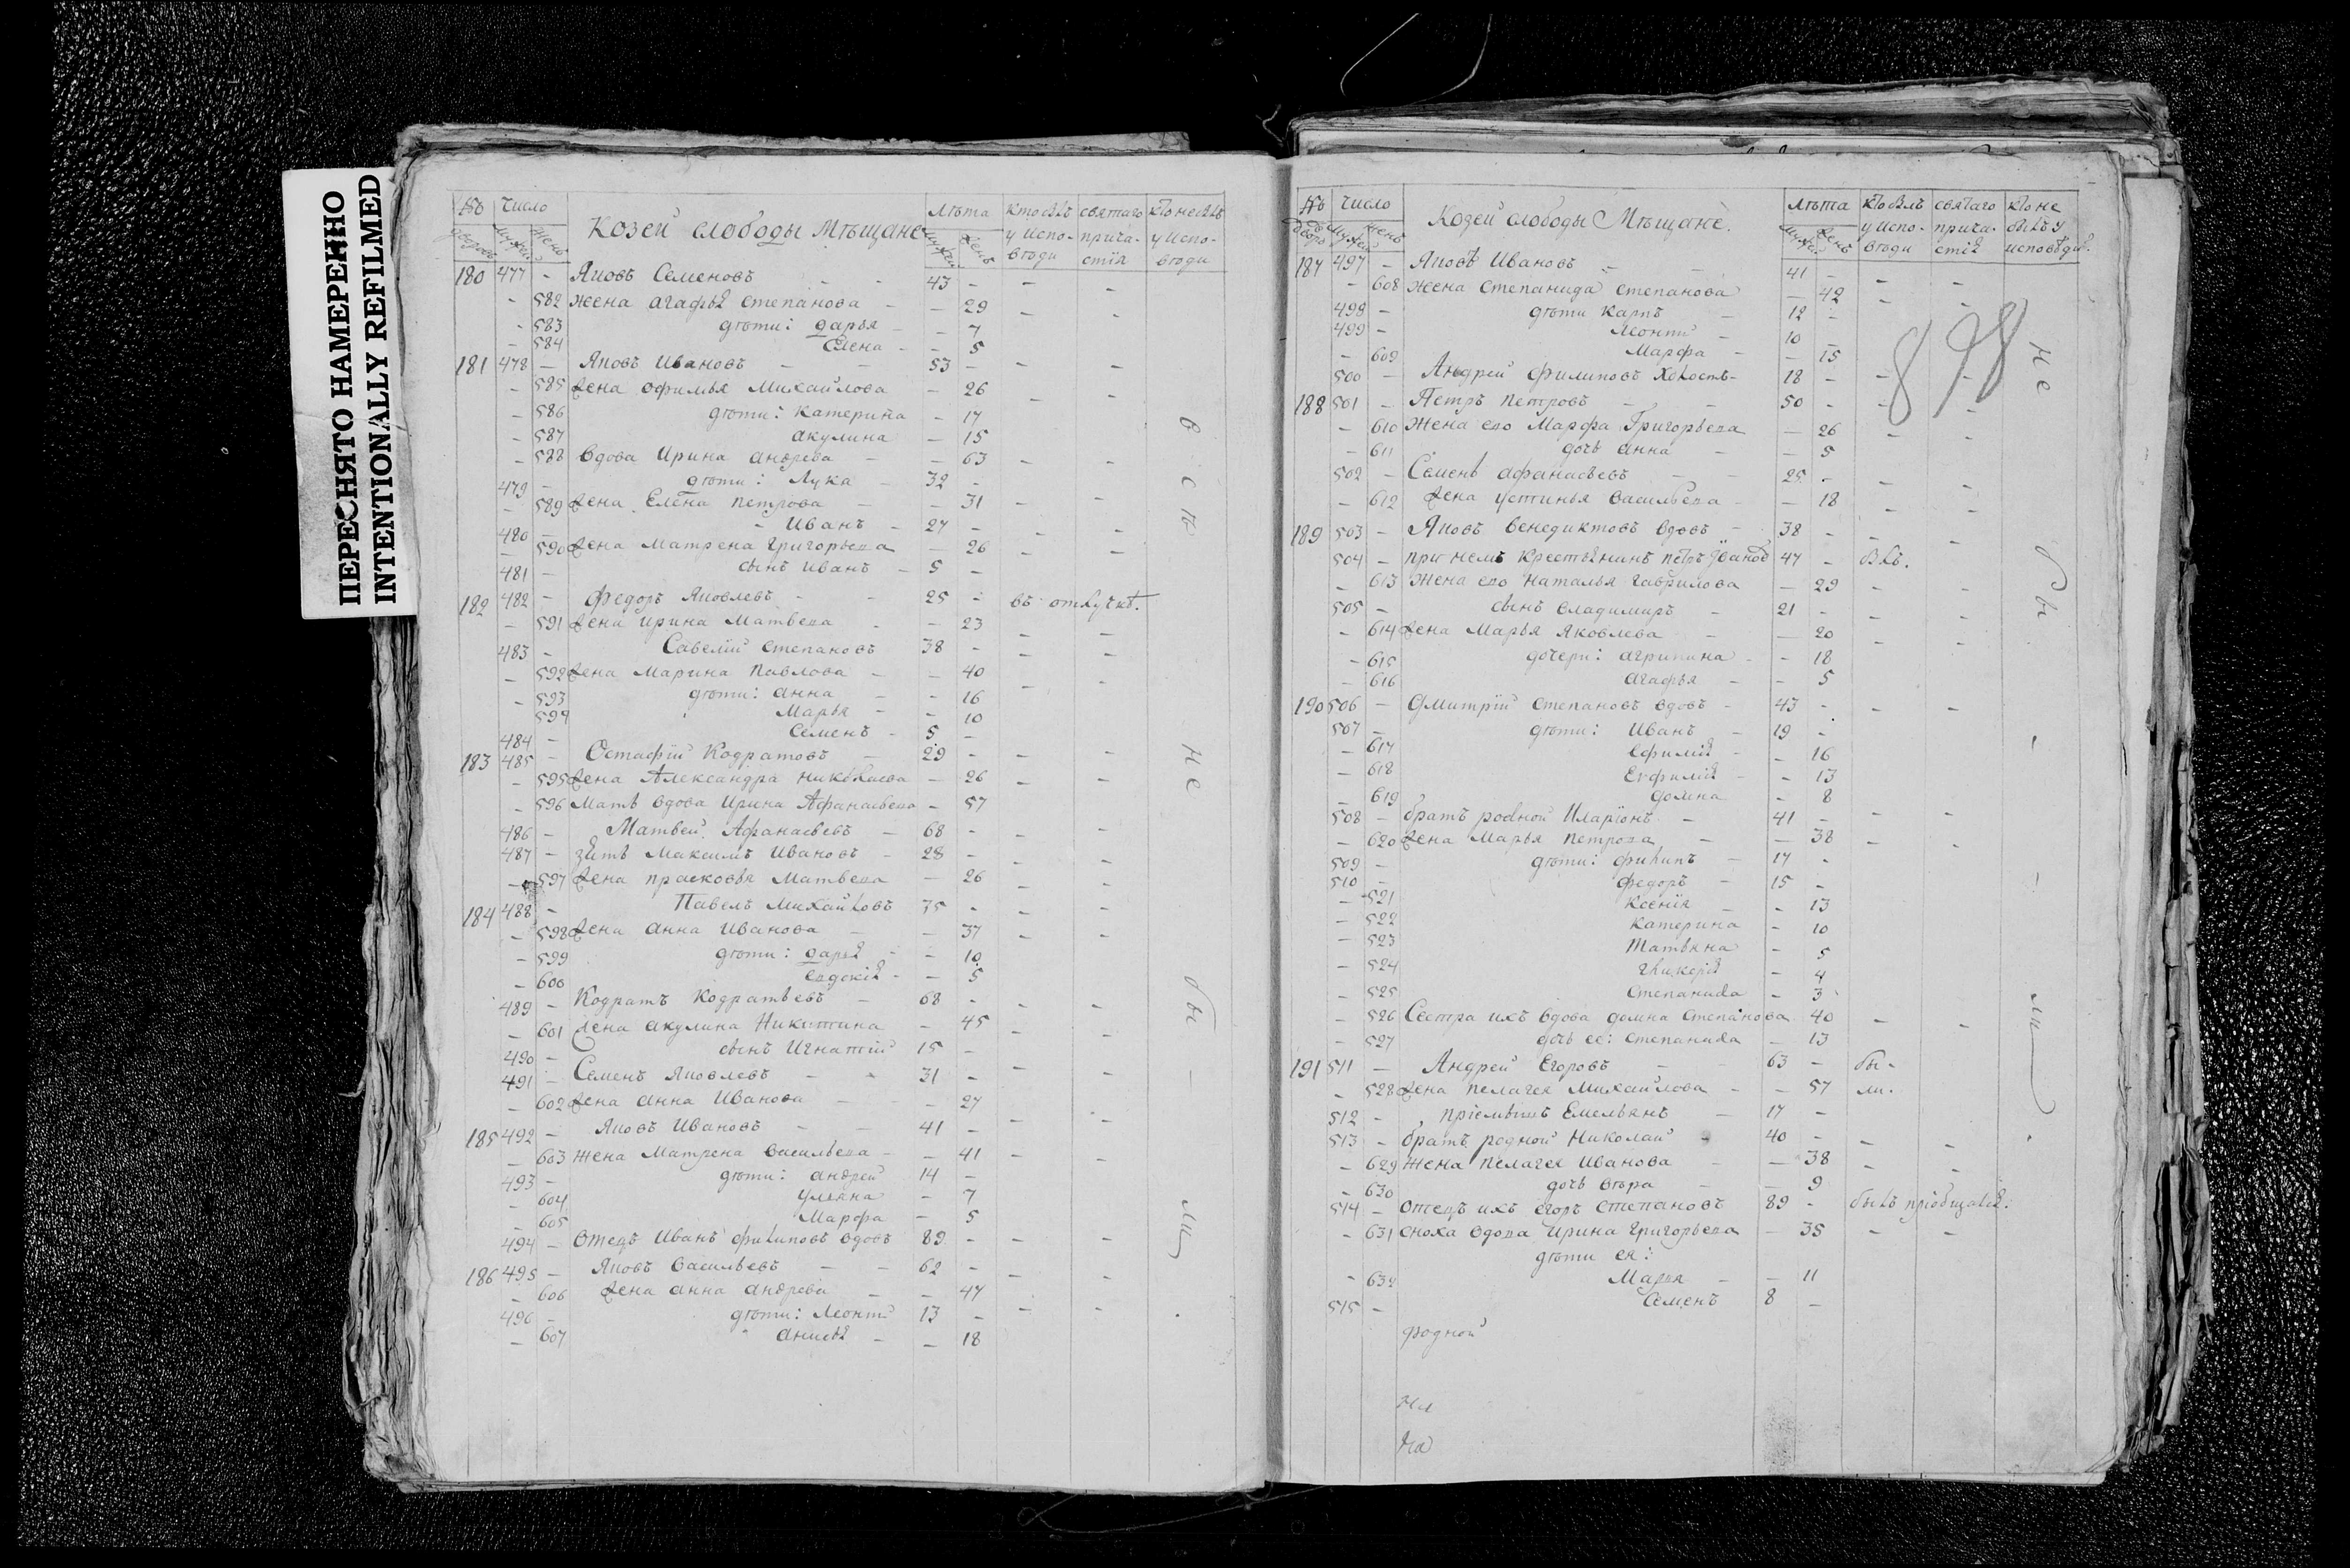 ПЕРЕСНЯТО НАМЕРЕННО
INTENTIONALLY REFILMED
№ Число Козей слободы Мѣщане Лѣта кто былъ у Исповѣди святаго причастія кто не былъ у Исповѣди
дворовъ мужей женъ мужей женъ
180 477 - Яковъ Семеновъ - - 43 - - -
- 582 жена агафья степанова - - 29 - -
- 583 дѣти: дарья - - 7
- 584 Елена - - 5
181 478 - Яковъ Ивановъ - - 53 - - -
- 585 жена офимья Михайлова - 26 - -
- 586 дѣти: Катерина - 17
- 587 акулина - 15
- 588 вдова Ирина андрева - - 63 - -
479 - дѣти: Лука - 32 -
- 589 жена Елена петрова - - 31 - -
480 - - Иванъ - 27 - - -
- 590 жена Матрена григорьева - 26 - -
481 - сынъ Иванъ - 5 -
182 482 - федоръ Яковлевъ - - 25 - въ отлучкѣ.
- 591 жена ирина Матвева - - 23 - -
483 - Савелій степановъ 38 - - -
- 592 жена Марина павлова - - 40 - -
- 593 дѣти: анна - - 16
- 594 Марья - - 10
484 - Семенъ - 5 -
183 485 - Остафій Кодратовъ - 29 - - -
- 595 жена Александра николаева - 26 - -
- 596 Мать вдова Ирина Афанасьева - 57
486 - Матвей Афанасьевъ - 68 - - -
487 - зять Максимъ Ивановъ - 28 - - -
- 597 жена прасковья Матвева - 26 - -
184 488 - Павелъ Михайловъ 35 - - -
- 598 жена анна Иванова - - 37 - -
- 599 дѣти: дарья - - 10
- 600 евдокія - - 5
489 - Кодратъ Кодратьевъ - 68 - - -
- 601 жена акулина Никитина - 45 - -
490 - сынъ Игнатій 15 -
491 - Семенъ Яковлевъ - - 31 - - -
- 602 жена анна Иванова - - - 27
185 492 - Яковъ Ивановъ - - 41 - - -
- 603 жена Матрена васильева - - 41 - -
493 - дѣти: андрей 14 -
- 604 Ульяна - 7
- 605 Марфа - 5
494 - Отецъ Иванъ филиповъ вдовъ 89 - - -
186 495 - Яковъ васильевъ - - 62 - - -
- 606 жена анна андрева - - 47
496 - дѣти: Леонти 13 - - -
- 607 анисья - - 18
всѣ не бы - ли.
№ Число Козей слободы Мѣщане. Лѣта кто былъ у Исповѣди святаго причастія кто не былъ у исповѣди.
дворъ мужей женъ мужей женъ
187 497 - Яковъ Ивановъ - - 41 - - -
- 608 жена степанида степанова - 42 - -
498 - дѣти карпъ - 12 -
499 - Леонти - 10 -
- 609 Марфа - - 15
500 - Андрей филиповъ холостъ - 18 - - -
188 501 - Петръ петровъ - - 50 - - -
- 610 жена его Марфа Григорьева - 26 - -
- 611 дочь анна - - 5
502 - Семенъ афанасьевъ - - 25 - - -
- 612 жена устинья васильева - - 18 - -
189 503 - Яковъ венедиктовъ вдовъ - 38 - - -
504 - при немъ крестьянинъ петръ Ивановъ 47 - былъ.
- 613 жена его наталья гаврилова - 29 - -
505 - сынъ владимиръ - 21 - - -
- 614 жена Марья яковлева - - 20 - -
- 615 дочери: агрипина - - 18
- 616 агафья - - 5
190 506 - Дмитрій степановъ вдовъ - 43 - - -
507 - дѣти: Иванъ - 19 -
- 617 ефимія - - 16
- 618 Евфимія - - 13
- 619 домна - 8
508 - братъ родной Иларіонъ - 41 - - -
- 620 жена Марья петрова - - 38 - -
509 - дѣти: филипъ - 17 -
510 - федоръ - 15 -
- 521 ксенія - - 13
- 522 катерина - 10
- 523 татьяна - 5
- 524 гликерія - 4
- 525 степанида - 3
- 526 Сестра ихъ вдова домна степанова 40 - -
- 527 дочь ее: степанида - 13
191 511 - Андрей Егоровъ - - 63 - бы-
- 528 жена пелагея Михайлова - - 57 ли.
512 - пріемышъ Емельянъ - 17 -
513 - братъ родной Николай - 40 - - -
- 629 жена пелагея Иванова - - 38 - -
- 630 дочь вѣра - - 9
514 - отецъ ихъ егоръ степановъ 89 - былъ пріобщался.
- 631 сноха вдова ирина григорьева - 35 - -
дѣти ея:
- 632 Марья - - 11
515 - Семенъ 8 -
родной
не бы - - ли.
898
На